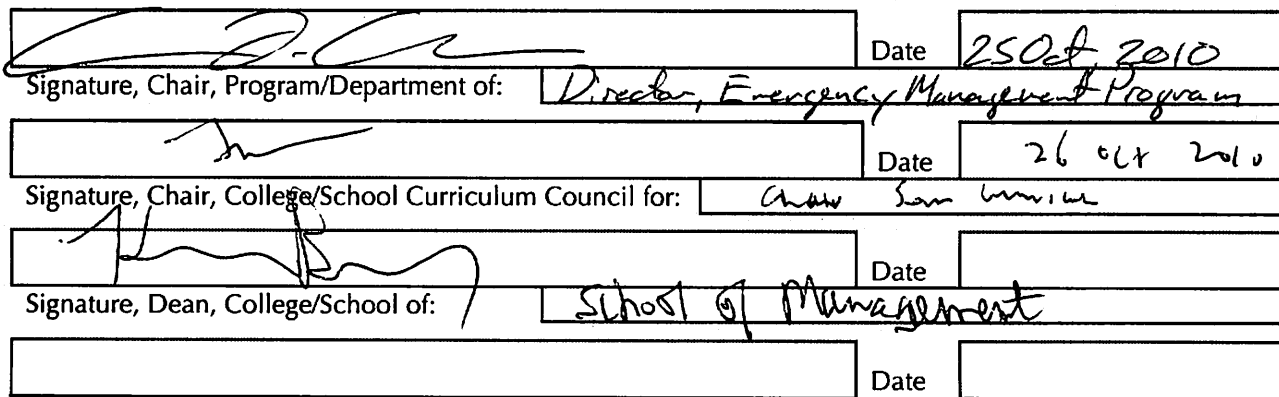 Date 25 Oct, 2010
Signature, Chair, Program/Department of: Director, Emergency Management Program
Date 26 Oct 2010
Signature, Chair, College/School Curriculum Council for: Chair
Date
Signature, Dean, College/School of: School of Management
Date